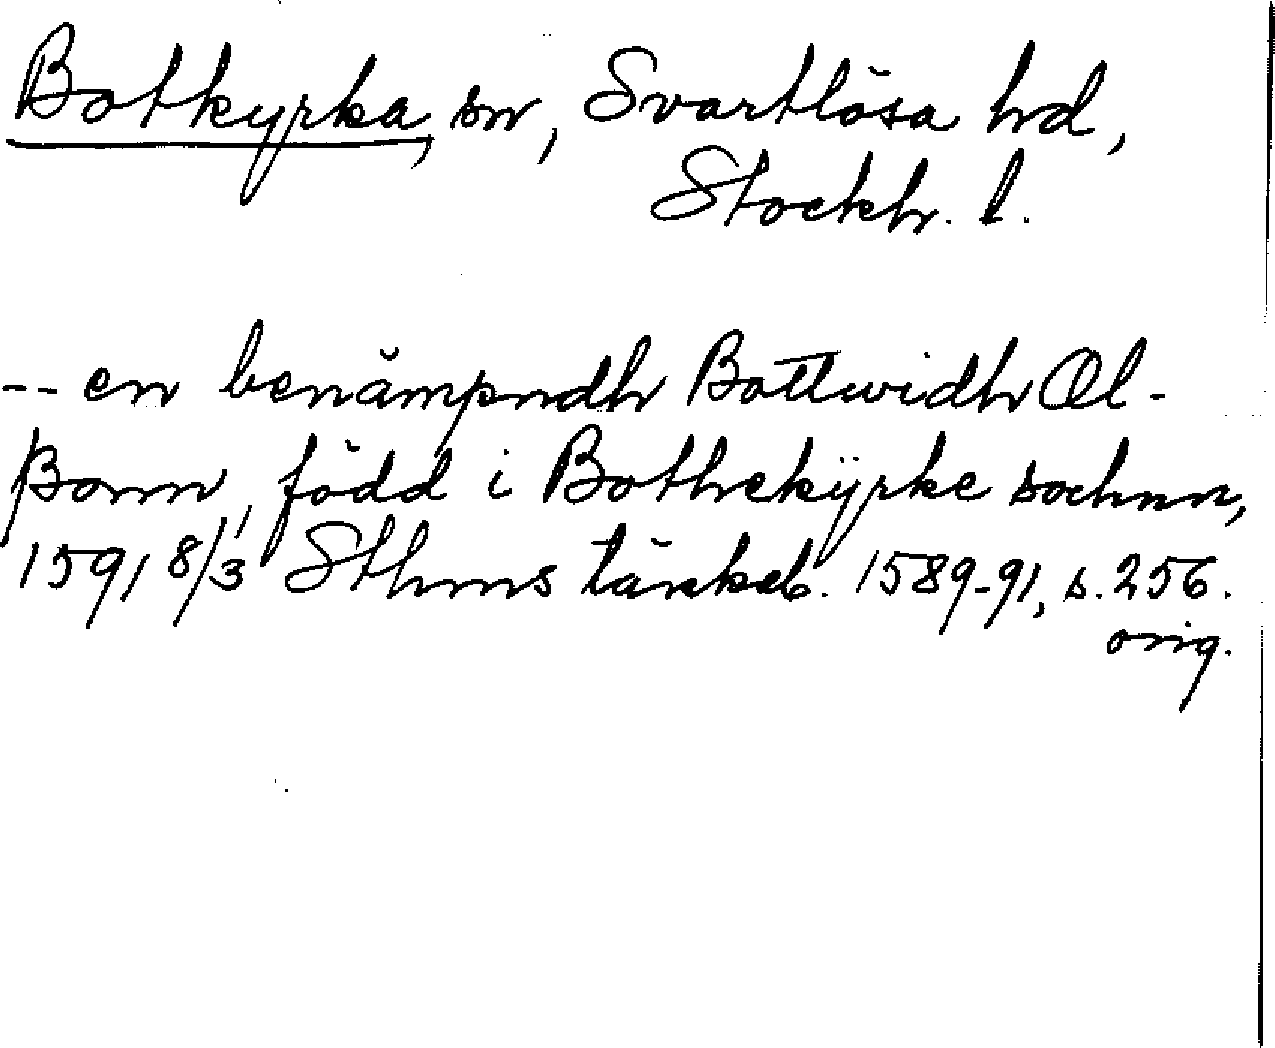 Botkyrka, sn, Svartlösa hd,
Stockh. l.
-- en benämpndh Bottwidh Ol-
ßonn, född i Bothekÿrke sochnn,
1591 8/3 Sthms tänkeb. 1589-91, s. 256.
orig.